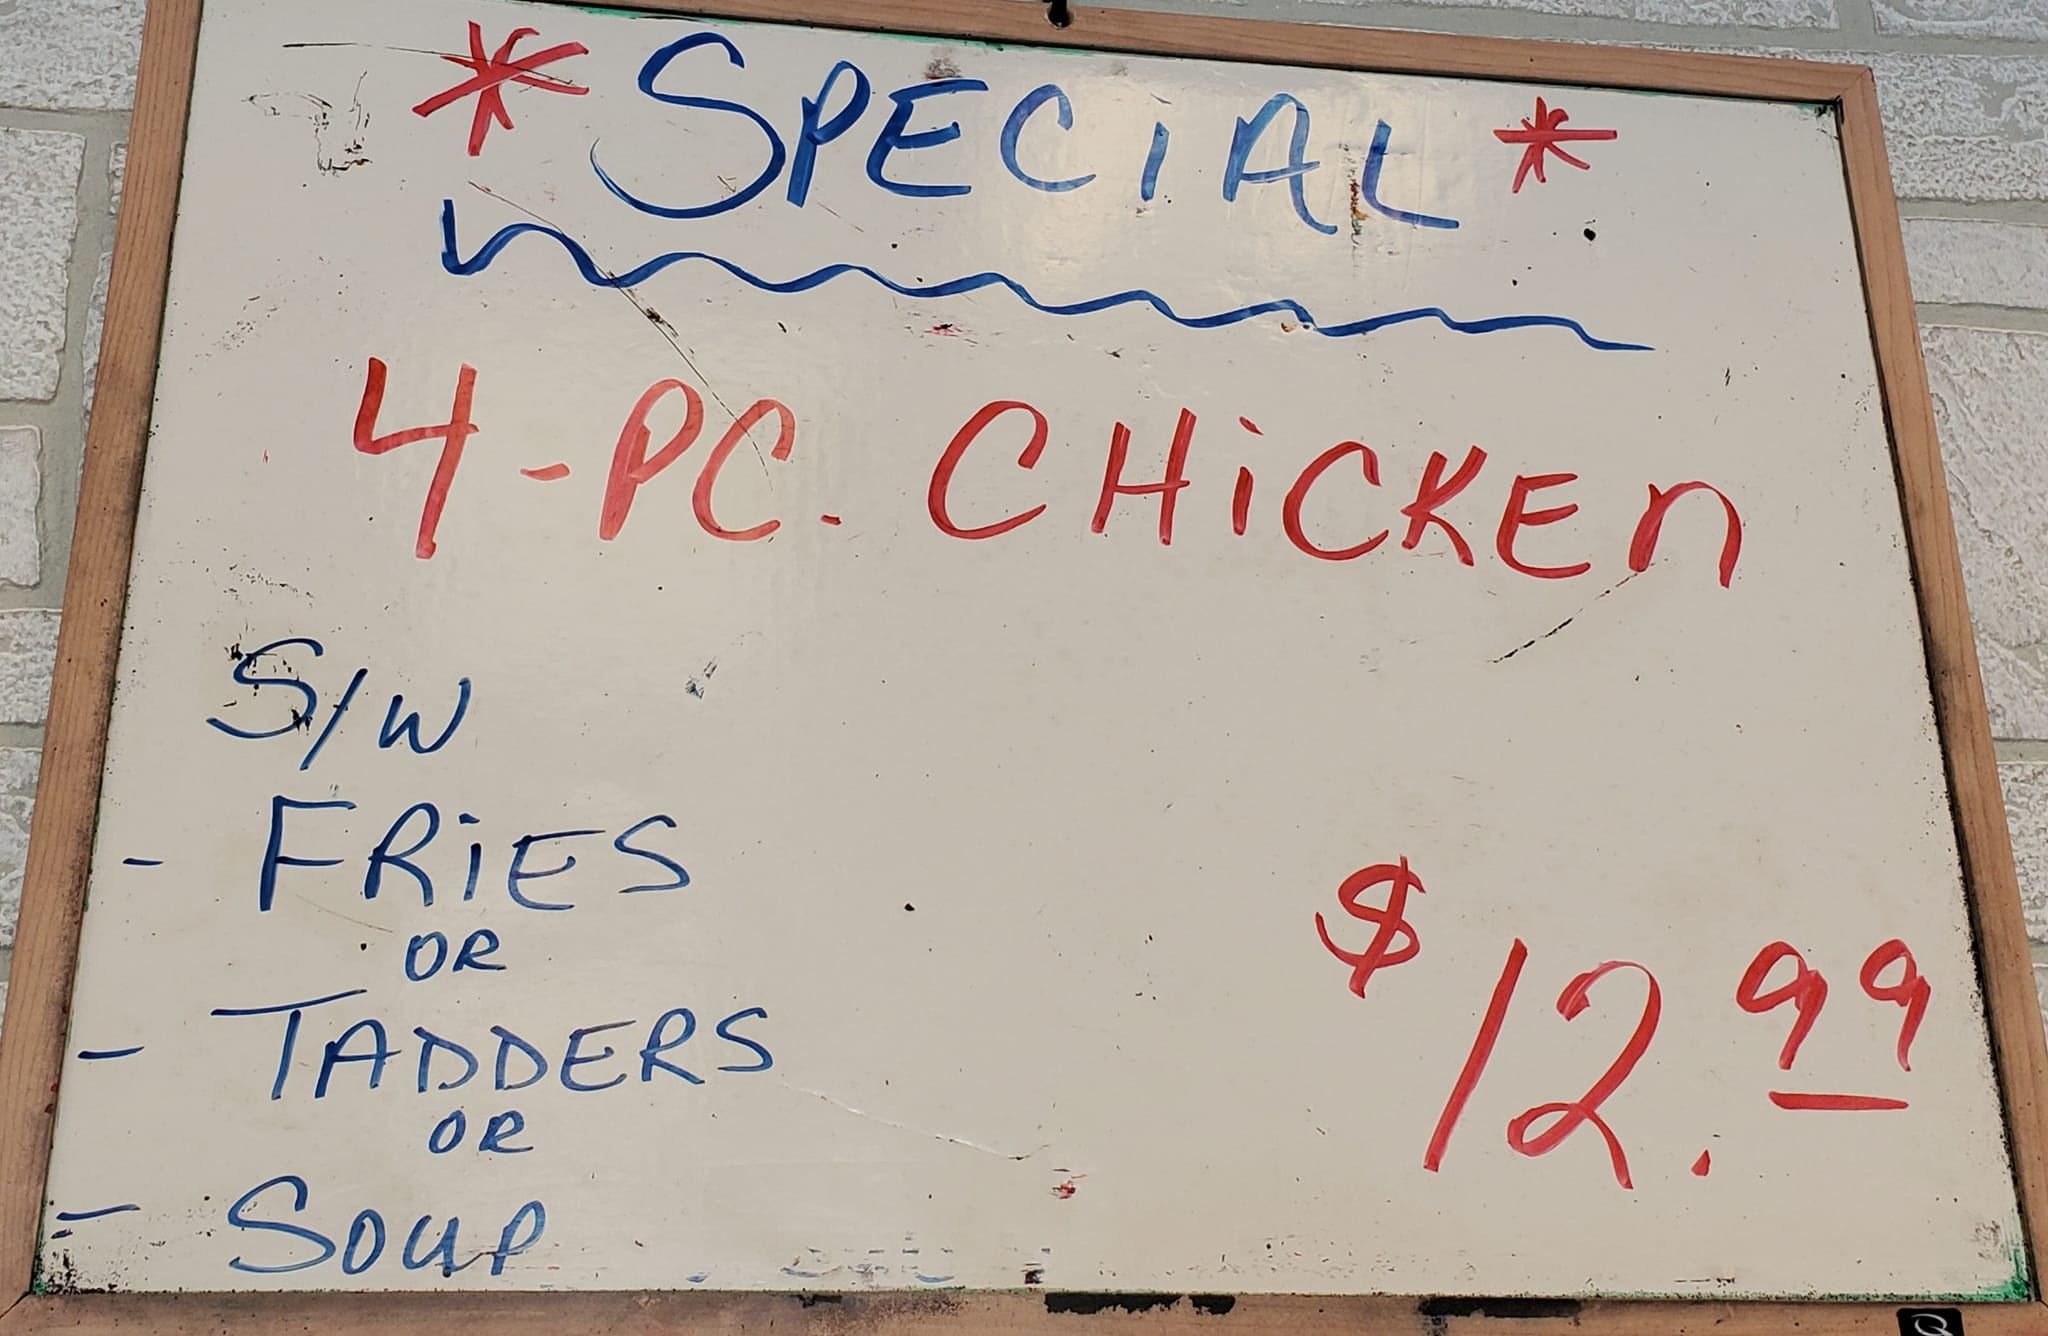 * SPECiAL *
4-PC. CHiCKEn
S/W
- FRiES
OR
- TADDERS
OR
- SOUP
$12.99